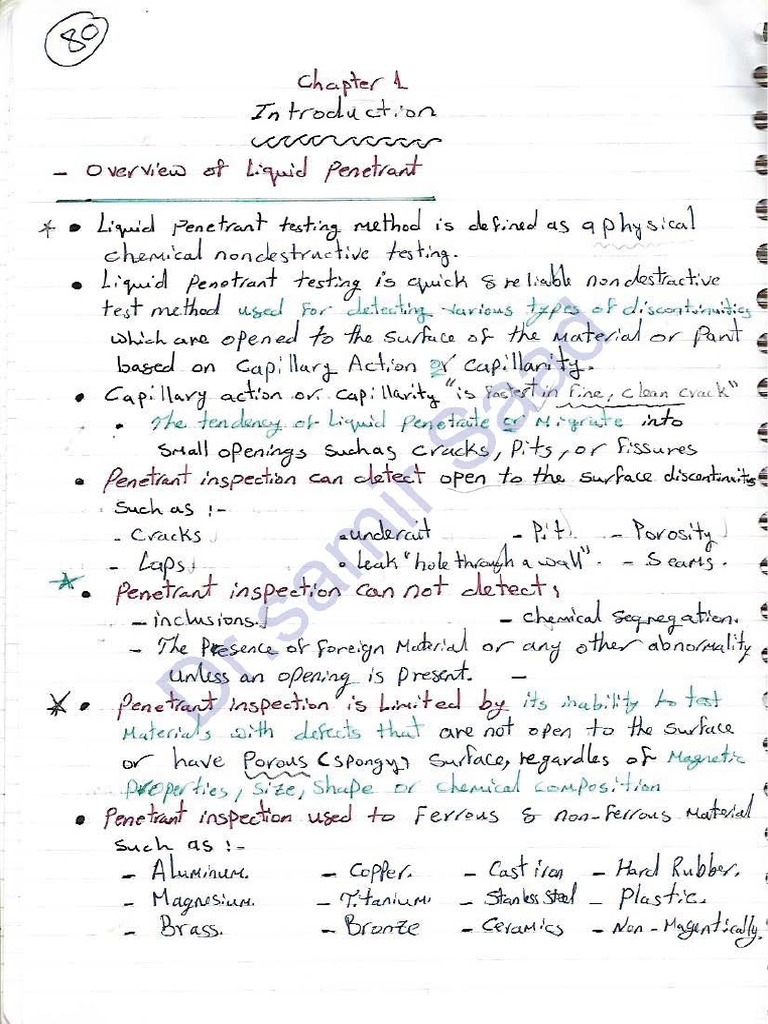 80
Chapter 1
Introduction
- Overview of Liquid Penetrant
* • Liquid Penetrant testing method is defined as a physical
chemical nondestructive testing.
• Liquid Penetrant testing is quick & reliable nondestractive
test method used for detecting various types of discontinuities
which are opened to the surface of the material or Part
based on Capillary Action or capillarity.
• Capillary action or capillarity "is fastest in fine, clean crack"
• The tendency of Liquid Penetrate or Migrate into
small openings such as cracks, Pits, or fissures
• Penetrant inspection can detect open to the surface discontinuities
such as :-
- Cracks • undercut - Pit - Porosity
- Laps • Leak "hole through a wall". - Seams.
* • Penetrant inspection can not detect;
- inclusions. - chemical segregation.
- The Presence of foreign Material or any other abnormality
unless an opening is present. -
* • Penetrant inspection is Limited by its inability to test
Materials with defects that are not open to the surface
or have Porous (spongy) surface, regardles of Magnetic
Properties, Size, Shape or chemical composition
• Penetrant inspection used to Ferrous & non-ferrous Material
such as :-
- Aluminum. - Copper. - Cast iron - Hard Rubber.
- Magnesium. - Titanium. - Stainless Steel - Plastic.
- Brass. - Bronze - Ceramics - Non-Magentically.
Dr.samir Saad